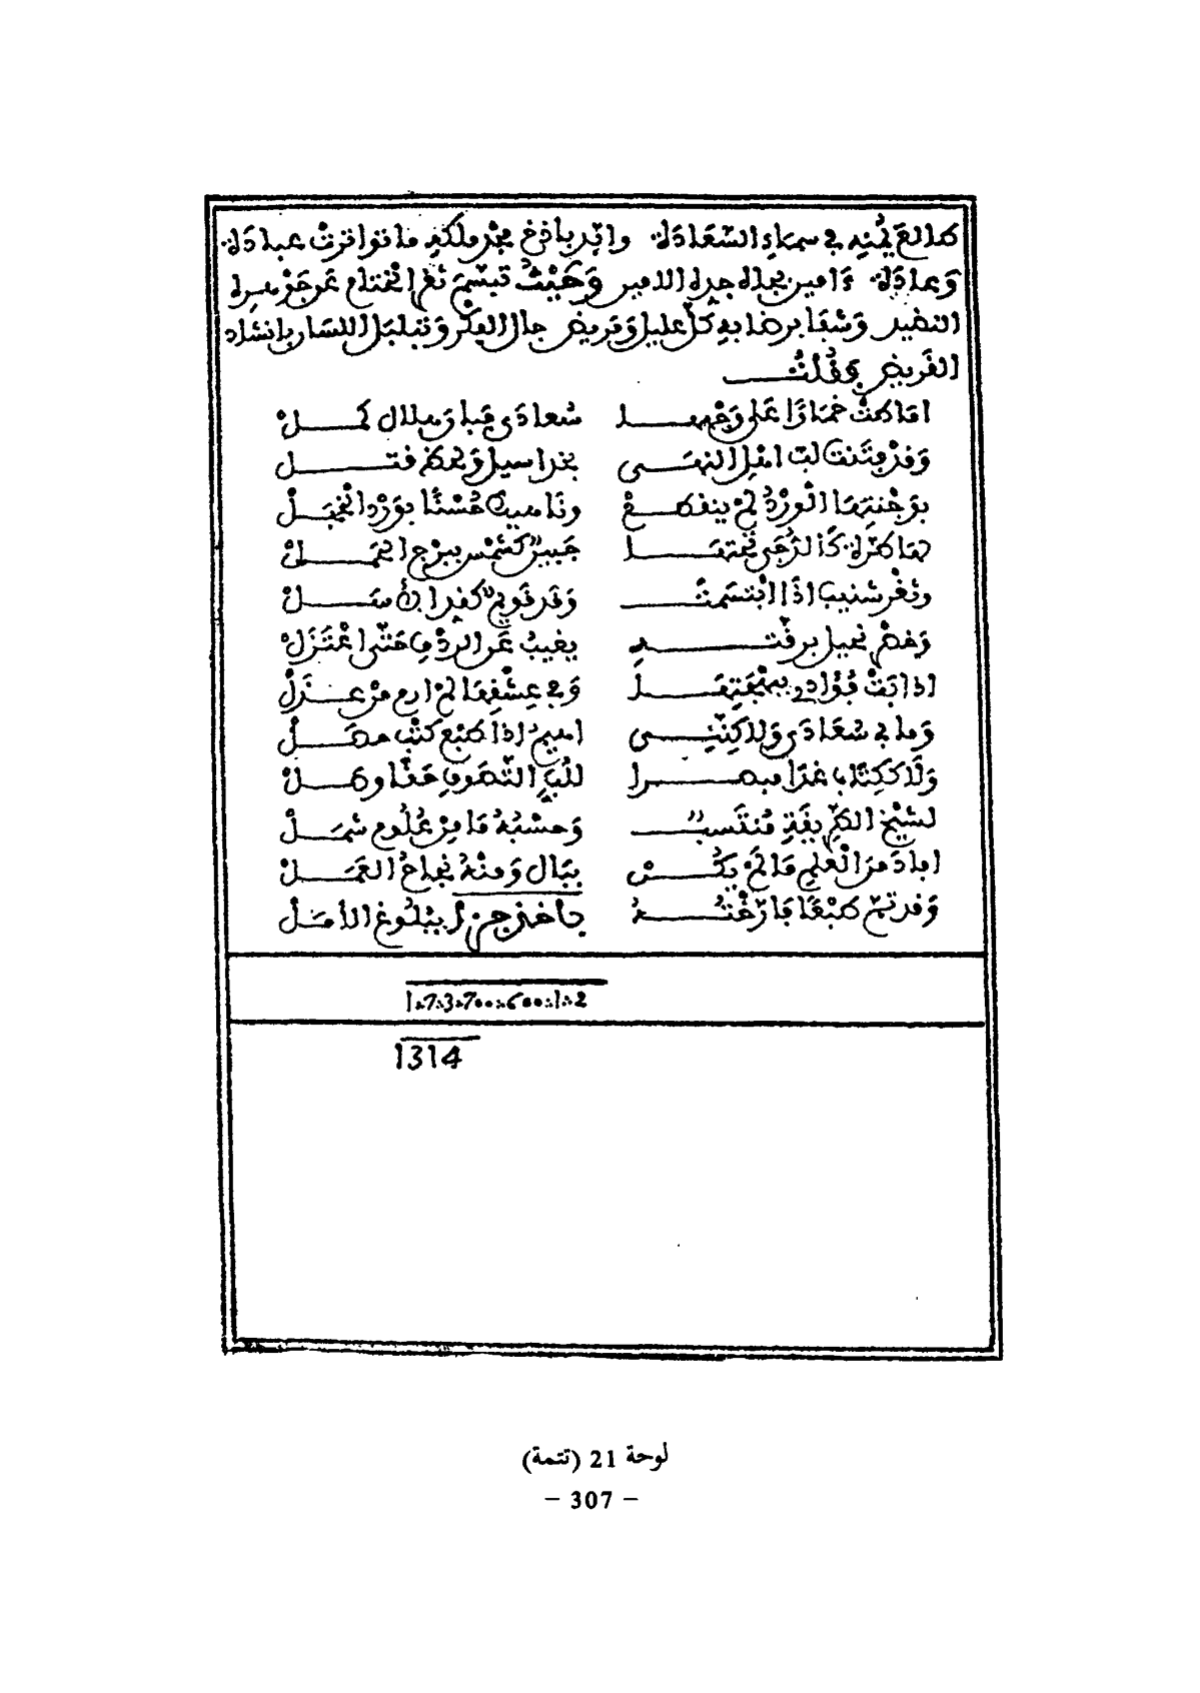 طالع يمنه في سماء السعادة وابد بافق مجد ملكه ما تواترت عبادة
وعادة ءامين بجاه جده الامين وحيث تبسم ثغر الختام عن جوهره
النضيد وشفا برضابه كل عليل ومريض جال الفكر وتبلبل اللسان بإنشاد
القريض فقلت
اماطت خمارا على وجهها سعادى فبان هلال كمل
وقد فتنت لب اهل النهى بخد اسيل ولحظ قتل
بوجنتها الورد لم ينقطع وناهيك حسنا بورد الخجل
لها طرة كالدجى تحتها جبين كشمس ببرج الحمل
وثغر شنيب اذا ابتسمت وقد قويم كغصن
وخصر نحيل برقته يغيب عن الردف حتى اعتزل
اذابت فؤادي ببهجتها وفي عشقها لم ارع من عذل
وما بي سعادى ولاكننى اهيم اذا طبع كتب حصل
ولا ككتاب غدا مبصرا للب التصوف حقا وهل
لشيخ الطريقة منتسب وحسبه ما من علوم شمل
افاد من العلم ما لم يكن ببال ومنه نجاح العمل
وقد تم طبعا فارخته جا خذ جز ا ببلوغ الأمل
1.7.3.700.600.1.2
1314
لوحة 21 (تتمة)
– 307 –